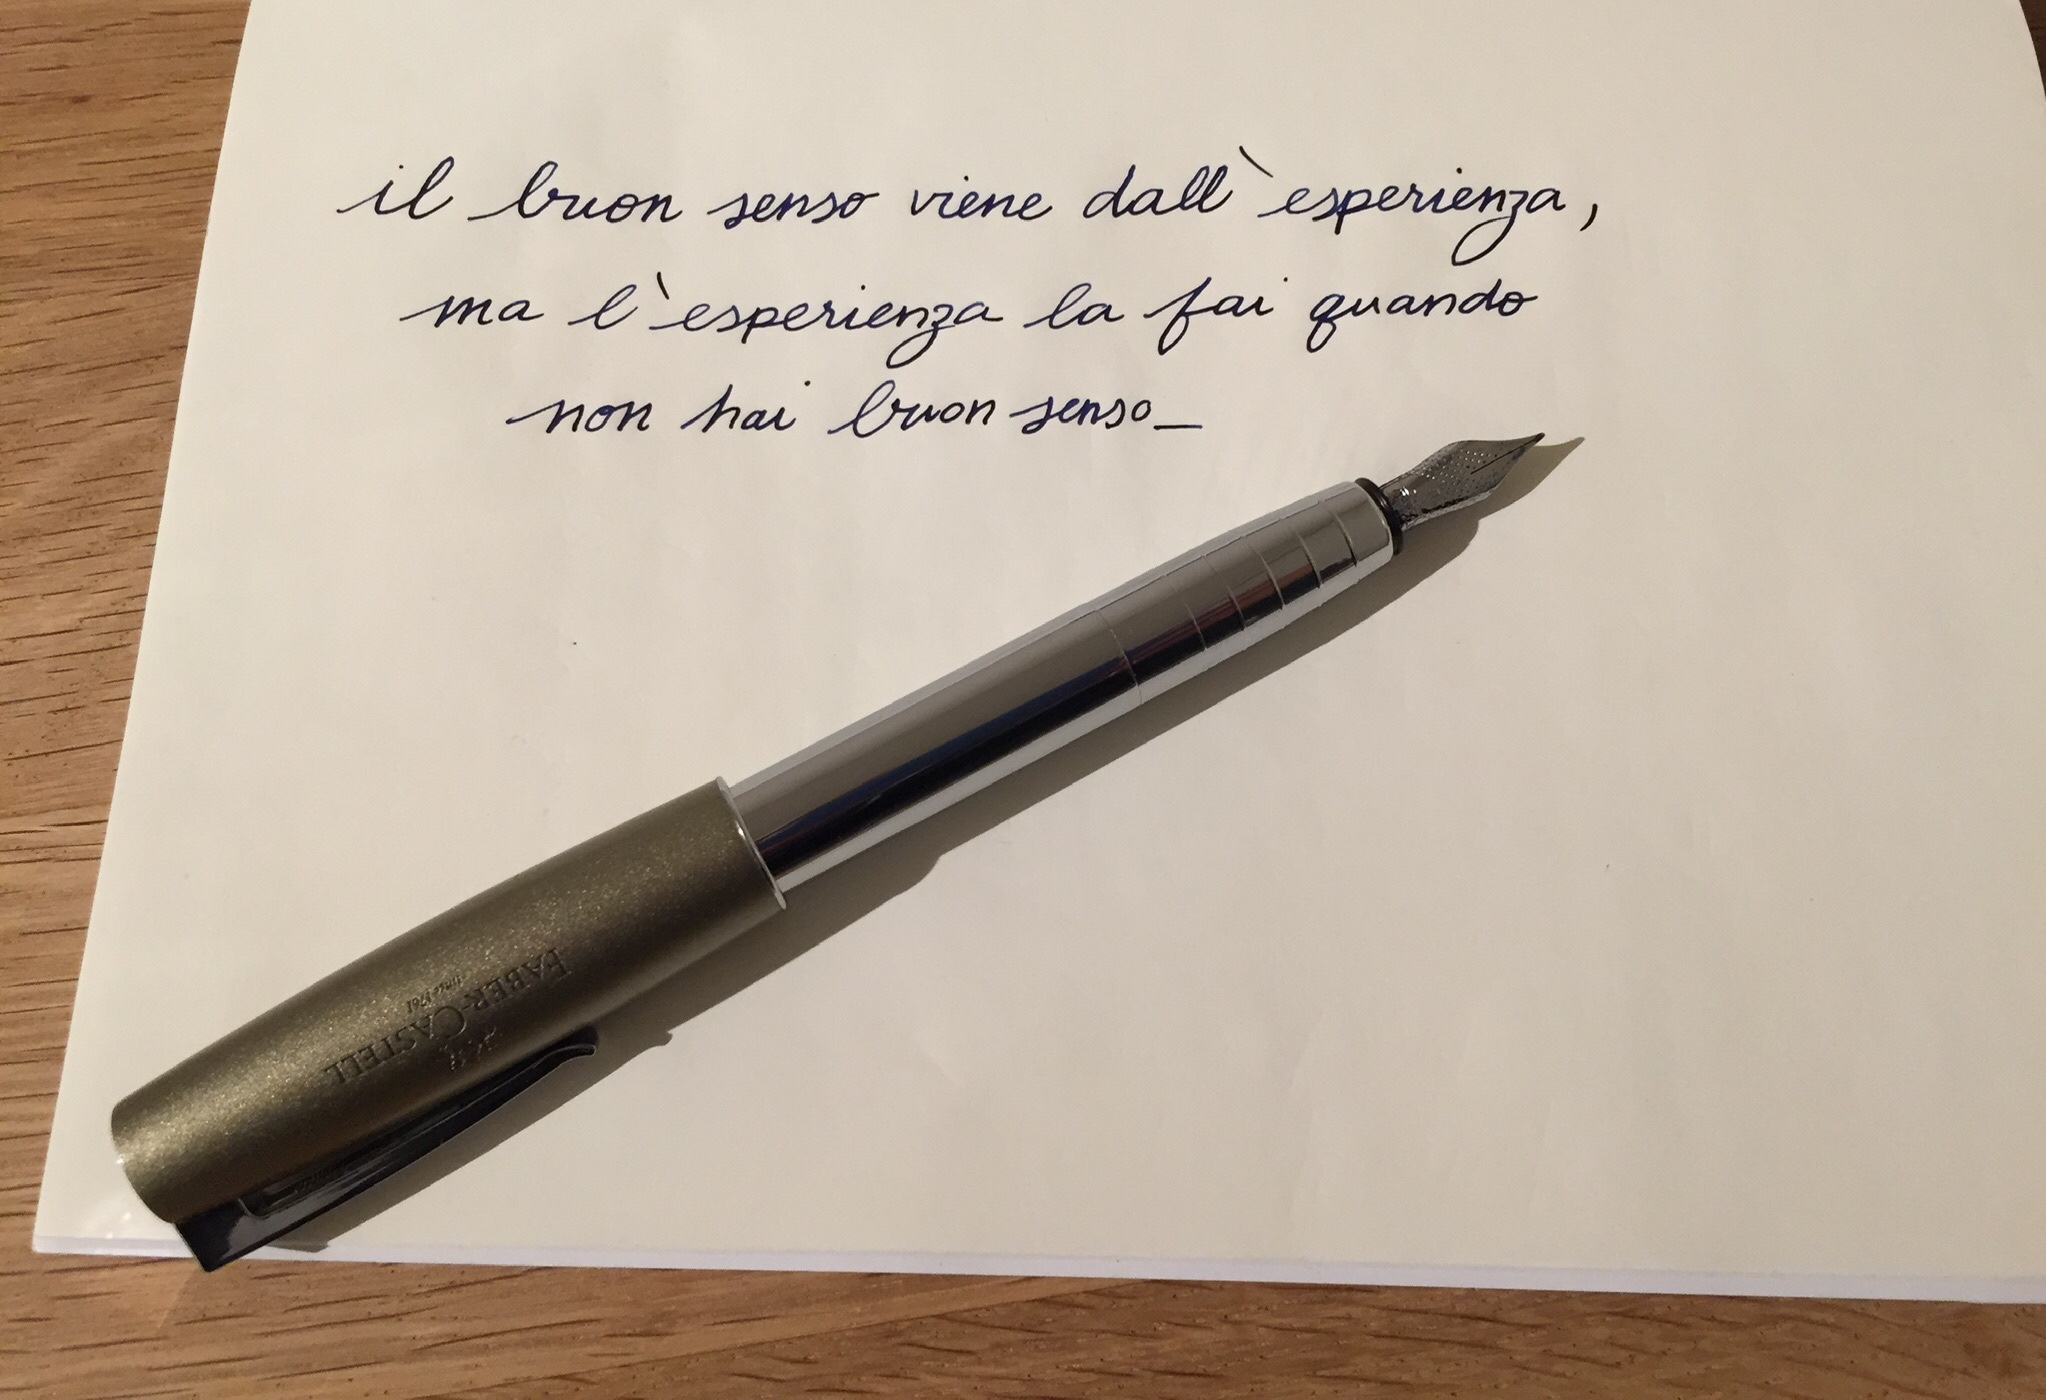 il buon senso viene dall`esperienza,
ma l`esperienza la fai quando
non hai buon senso_
FABER-CASTELL
since 1761